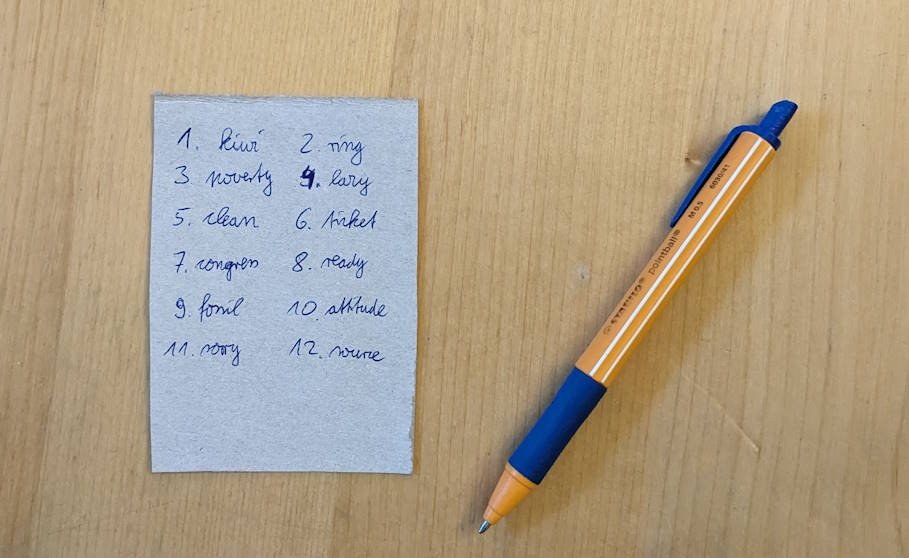 1. kiwi 2. ring
3. poverty 4. lazy
5. clean 6. ticket
7. congress 8. ready
9. fossil 10. attitude
11. sorry 12. source
STABILO® pointball® M 0.5 6030/41